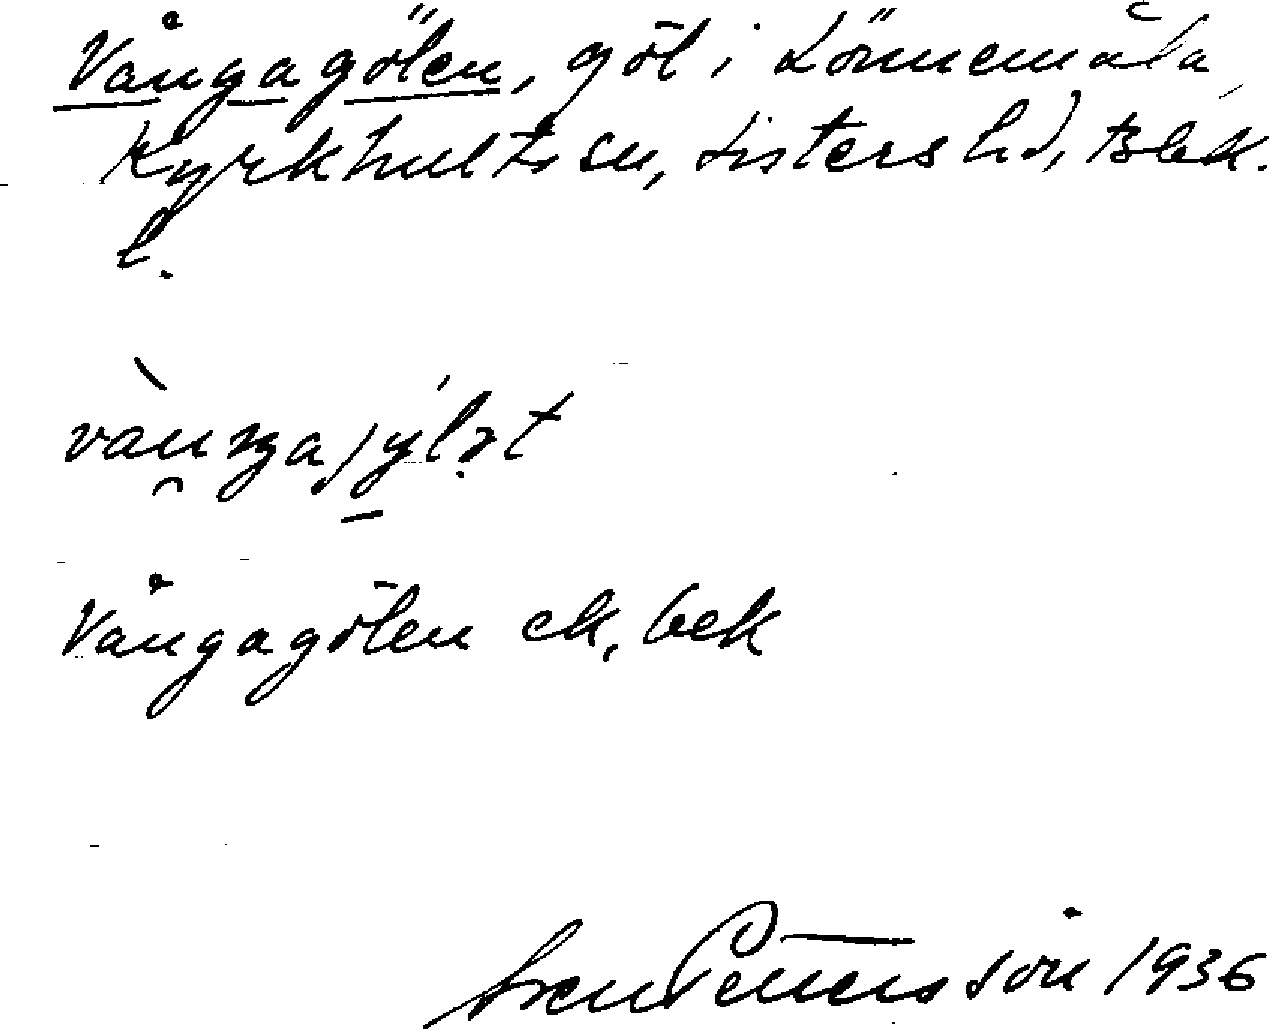 Vångagölen, göl i Lönnemåla,
Kyrkhults sn, Listers hd, Blek.
l.
Vångagölen ek, bek
Sven Pettersson 1936